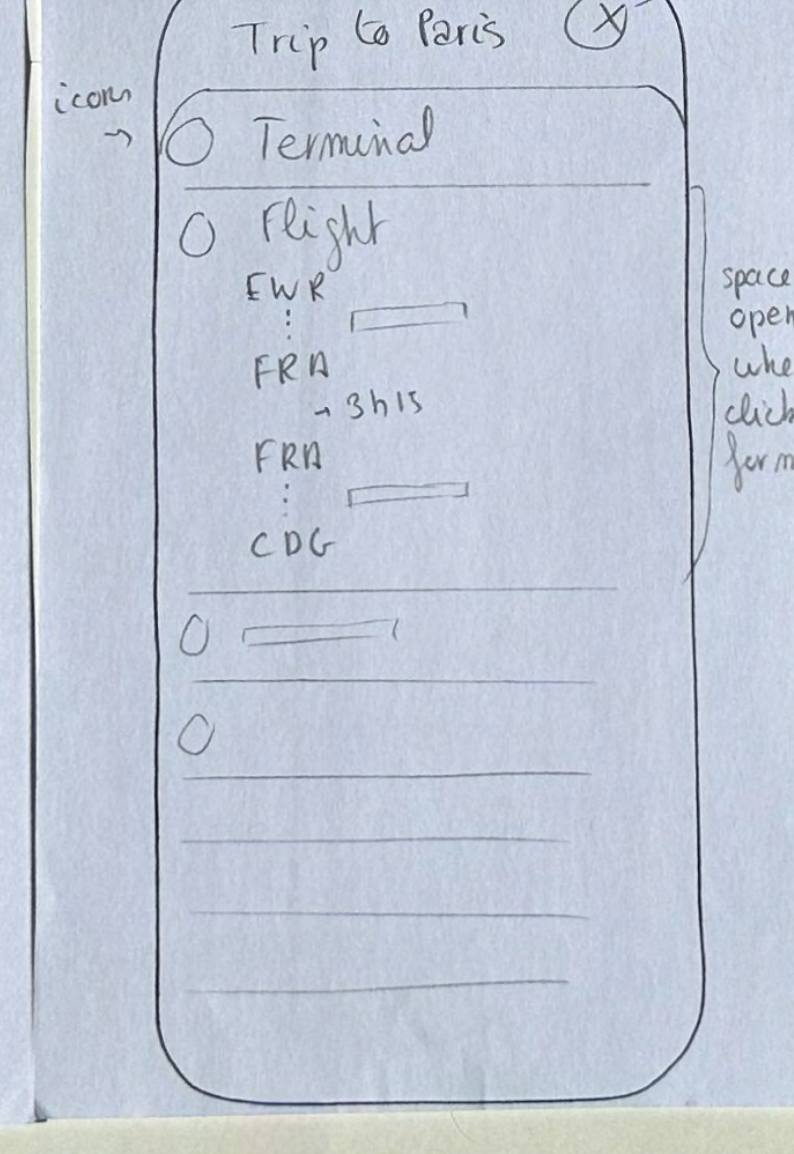 Trip to Paris X
icons
→
Terminal
Flight
EWR
FRA
→ 3h15
FRA
CDG
space
open
whe
click
for m